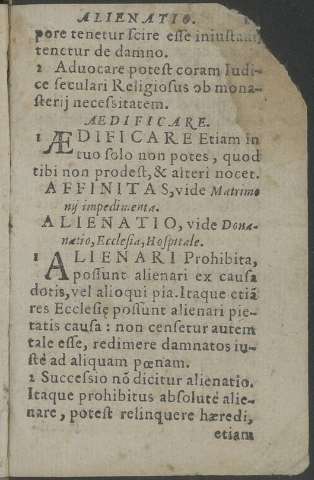 ALIENATIO.
pore tenetur scire esse iniustam,
tenetur de damno.
2 Aduocare potest coram Iudi-
ce seculari Religiosus ob mona-
sterij necessitatem.
ÆDIFICARE.
1 ÆDIFICARE Etiam in
tuo solo non potes, quod
tibi non prodest, & alteri nocet.
AFFINITAS, vide Matrimo
nij impedimenta.
ALIENATIO, vide Dona-
natio, Ecclesia, Hospitale.
1 ALIENARI Prohibita,
possunt alienari ex causa
dotis, vel alioqui pia. Itaque etiã
res Ecclesię possunt alienari pie-
tatis causa: non censetur autem
tale esse, redimere damnatos iu-
stè ad aliquam pœnam.
2 Successio nõ dicitur alienatio.
Itaque prohibitus absolutè alie-
nare, potest relinquere hæredi,
etiam